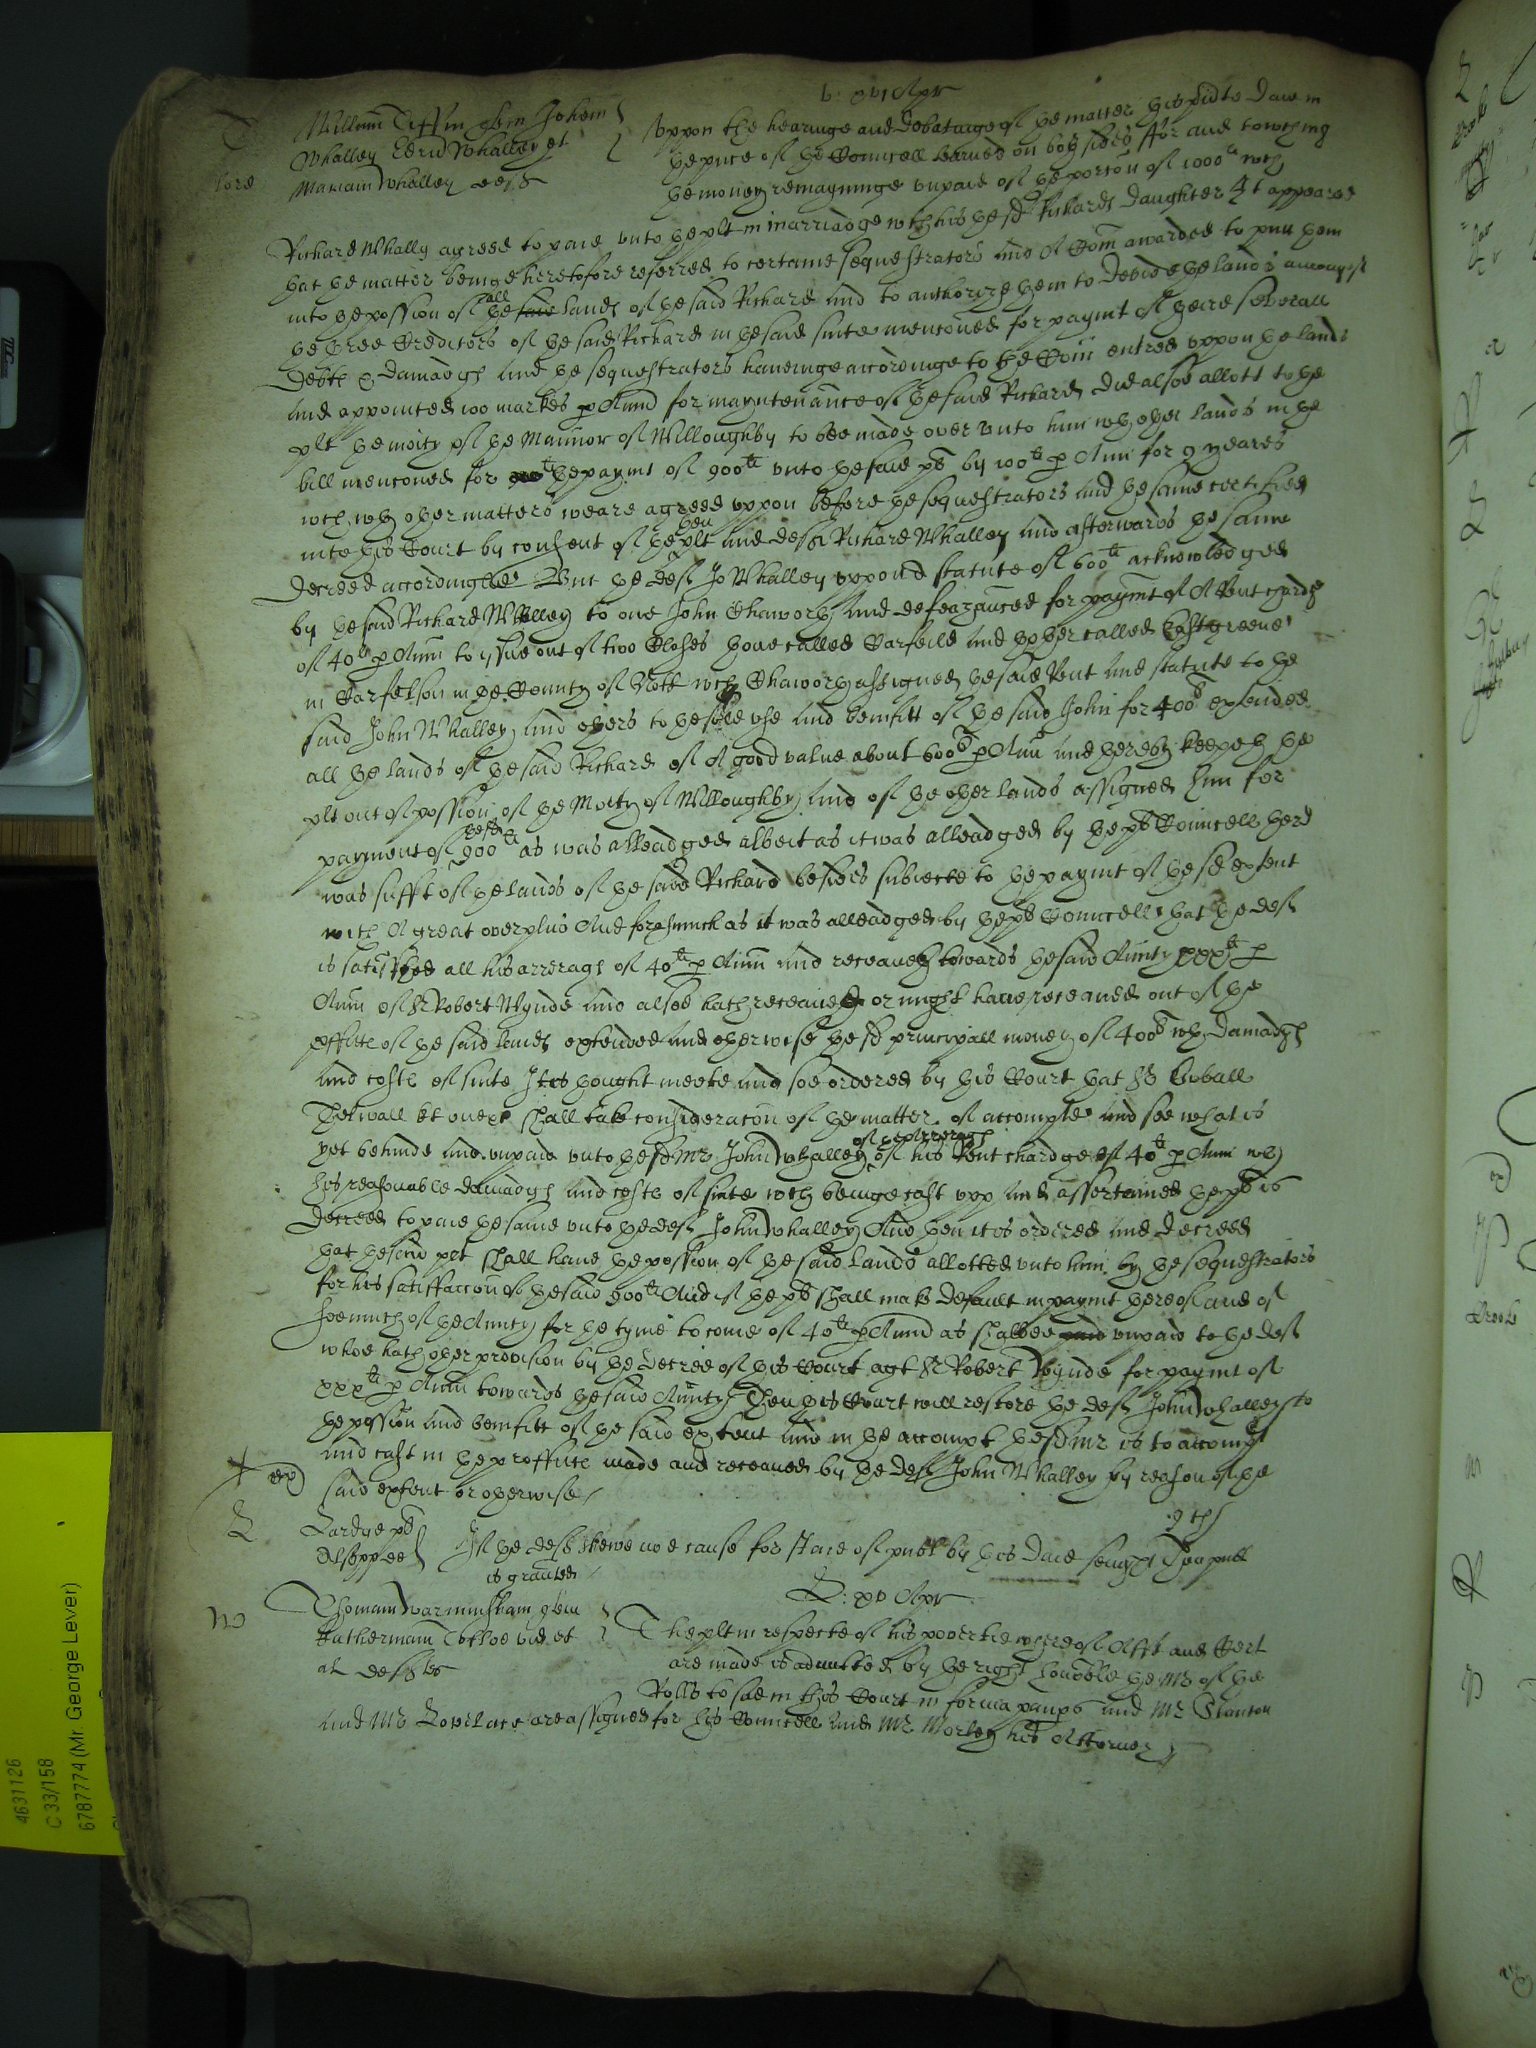 V. xvi Apr
T
Willum Tiffin quer Johem
Whalley Edru Whalley et
Mariam Whalley defts
lore
Uppon the hearinge and debatinge of the matter this pnte daie in
the pnce of the Councell learned on both sides for and towching
the money remayninge unpaid of the porcon of 1000li wch
Richard Whally agreed to paie unto the plt in marriadge wth his the sd Richards daughter It appeared
that the matter beinge heretofore referred to certaine sequestrators and A Com awarded to putt them
into the possion of the said all lands of the said Richard and to authorize them to devide the lands amongst
the three Creditors of the said Richard in the said suite menconed for paymt of theire severall
debts & damadgs and the sequestrators haveinge accordinge to the Com entred uppon the lands
and appointed 100 markes p Annu for mayntenance of the said Richard did alsoe allott to the
plt the moity of the Mannor of Willoughby to bee made over unto him wth other lands in the
bill menconed for the paymt of 900li unto the said plt by 100li p Ann for 9 yeares
wch wth other matters weare agreed uppon before the sequestrators and the same certified
into this Court by consent of the then plt and deft Richard Whalley and afterwards the same
decreed accordinglie But the deft Jo Whalley uppon a statute of 600li acknowledged
by the said Richard Whalley to one John Chaworth and defeazanced for paymt of A Rent chardg
of 40li p Annu to issue out of two Closes thone called Carfeild and thother called Eastgreene
in Carfelson in the County of Nott wch Chaworth assigned the said Rent and statute to the
said John Whalley and others to the sole use and benifitt of the said John for 400li extended
all the lands of the said Richard of A good value about 600li p Annu and thereby keepeth the
plt out of possion of the Moity of Willoughby and of the other lands assigned him for
payment of the sd 900li as was alleadged albeit as it was alleadged by the plts Councell there
was sufft of the lands of the said Richard besides subiecte to the paymt of the sd extent
with A great overplus And forasmuch as it was alleadged by the plts Councell that the deft
is satisfied all his arreragf of 40li p Annu and receaveth towards the said Anuity xxxli p
Annu of Sr Robert Wynde and alsoe hath receaved or might have receaved out of the
pffitts of the said lands extended and otherwise the sd principall money of 400li wth damadgs
and costs of suite It is thought meete and soe ordered by this Court that Sr Euball
Thelwall kt one &c shall take consideracon of the matter of accompte and see what is
yet behinde and unpaid unto the sd Mr John Whalley of the arreragf of his Rent chardge of 40li p Annu wth
his reasonable damadgs and costs of suite wch beinge cast upp and assertained the plt is
decreed to paie the same unto the deft John Whalley And then it is ordered and decreed
that the said plt shall have the possion of the said lands allotted unto him by the sequestrators
for his satisfaccon of the said 900li And if the plt shall make default in paymt thereof and of
soe much of the Anuity for the tyme to come of 40li p Annu as shalbee unpaid to the deft
whoe hath other provision by the decree of this Court agt Sr Robert Wynde for paymt of
xxxli p Annu towards the said Anuity Then this Court will restore the deft John Whalley to
the possion and benifitt of the said extent And in the accompt the sd Mr is to accompt
and cast in the proffitts made and receaved by the deft John Whalley by reason of the
said extent or otherwise
ex
L
Lardge plt
Alsopp def
If the deft shewe noe cause for staie of publ by this daie sevnight Then publ
is granted
V: xv Apr
W
Thomam Warmincham quer
Katherinam Cothoe vid et
al defts
The plt in respecte of his povertie whereof Afft and Cert
are made is admitted by the right honoble the Mr of the
Rolls to sue in this Court in forma paupis and Mr Stanton
and Mr Lovelace are assigned for his Councell and Mr Morley his Attorney
4631126
C 33/158
6787774 (Mr. George Lever)